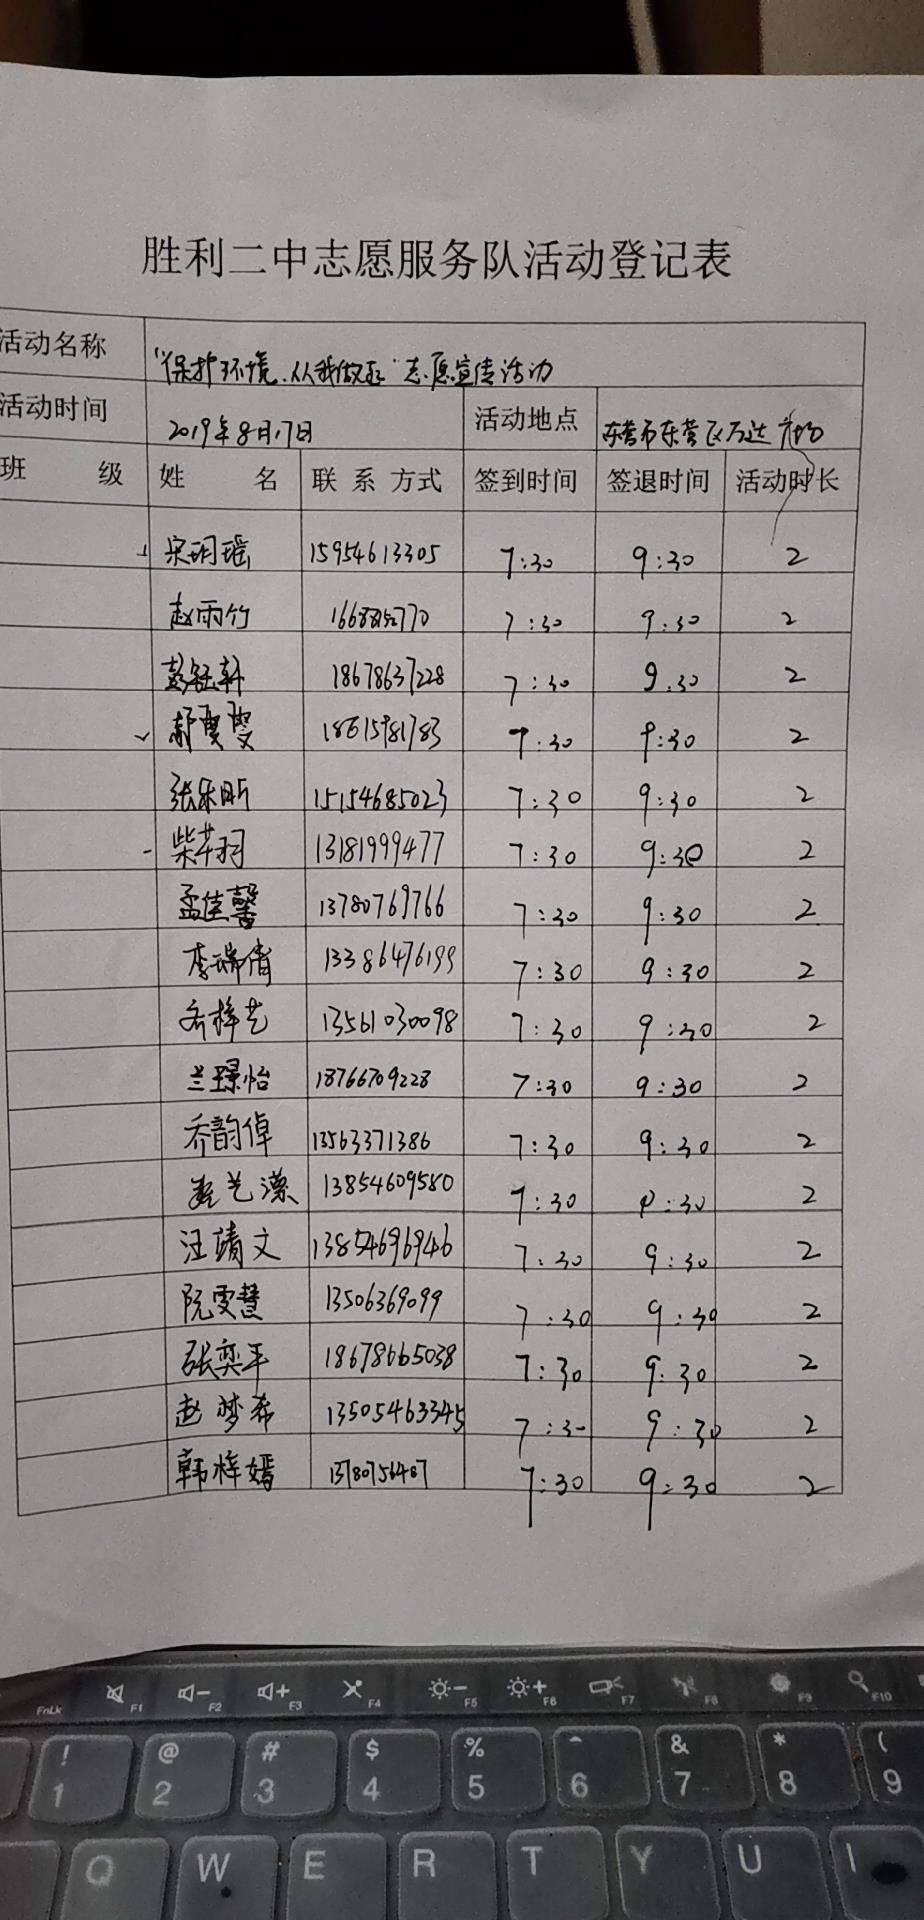 胜利二中志愿服务队活动登记表
活动名称 "保护环境,从我做起"志愿宣传活动
活动时间 2019年8月17日 活动地点 东营市东营区万达广场
班 级 姓 名 联系方式 签到时间 签退时间 活动时长
宋玥瑶 15954613305 7:30 9:30 2
赵雨竹 7:30 9:30 2
彭钰轩 18678637228 7:30 9.30 2
郝雯雯 18615981783 7:30 9:30 2
张乐昕 15154685023 7:30 9:30 2
柴芊羽 13181999477 7:30 9:30 2
孟佳馨 13780769766 7:30 9:30 2
李瑞倩 13386476199 7:30 9:30 2
齐梓艺 13561030098 7:30 9:30 2
兰璟怡 18766709228 7:30 9:30 2
乔韵倬 13563371386 7:30 9:30 2
艺潆 13854609580 7:30 9:30 2
汪靖文 13854696946 7:30 9:30 2
阮雯慧 13506369099 7:30 9:30 2
张奕平 18678665038 7:30 9:30 2
赵梦希 13505463345 7:30 9:30 2
韩梓嫣 13780756487 7:30 9:30 2
FnLk F1 F2 F3 F4 F5 F6 F7 F8 F9 F10
! @ # $ % ^ & * (
1 2 3 4 5 6 7 8 9
Q W E R T Y U I